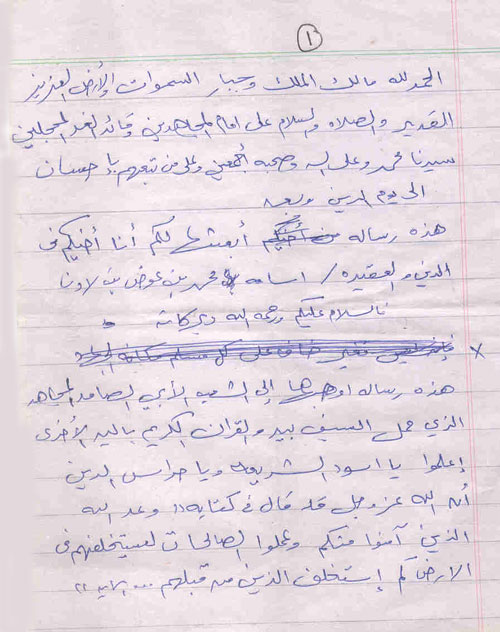 ١
الحمد لله مالك الملك وجبار السموات والأرض العزيز
القدير والصلاه والسلام على امام المجاهدين وقائد الغر المحجلين
سيدنا محمد وعلى اله وصحبه أجمعين وعلى من تبعهم بإحسان
الى يوم الدين وبعد
هذه رساله أبعثها لكم أنا أخيكم في
الدين والعقيده / اسامه محمد بن عوض بن لادن
فالسلام عليكم ورحمة الله وبركاته
x
هذه رساله اوجهها إلى الشعب الأبي الصامد المجاهد
الذي حمل السيف بيد والقران الكريم باليد الأخرى
إعلموا يا اسود الشريعه ويا حراس الدين
أن الله عز وجل قد قال في كتابه " وعد الله
الذين آمنوا منكم وعملوا الصالحات ليستخلفنهم في
الارض كم إستخلف الذين من قبلهم ... الايه "